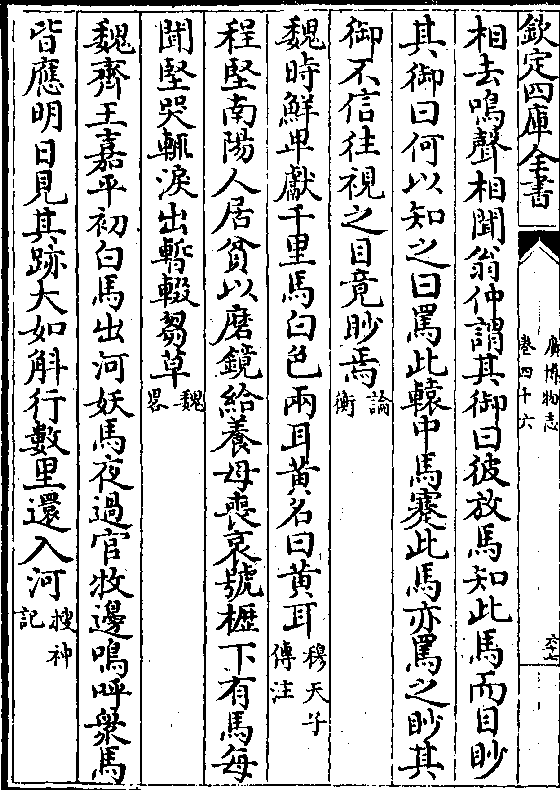 欽定四庫全書
廣博物志
卷四十六
相去鳴聲相聞翁仲謂其御曰彼放馬知此馬而目眇
其御曰何以知之曰罵此轅中馬蹇此馬亦罵之眇其
御不信往視之目竟眇焉論衡
魏時鮮卑獻千里馬白色兩耳黄名曰黄耳穆天子傳注
程堅南陽人居貧以磨鏡給養母喪哀號櫪下有馬每
聞堅哭輒淚出暫輟芻草魏畧
魏齊王嘉平初白馬出河妖馬夜過官牧邊嗚呼衆馬
皆應明日見其跡大如斛行數里還入河搜神記